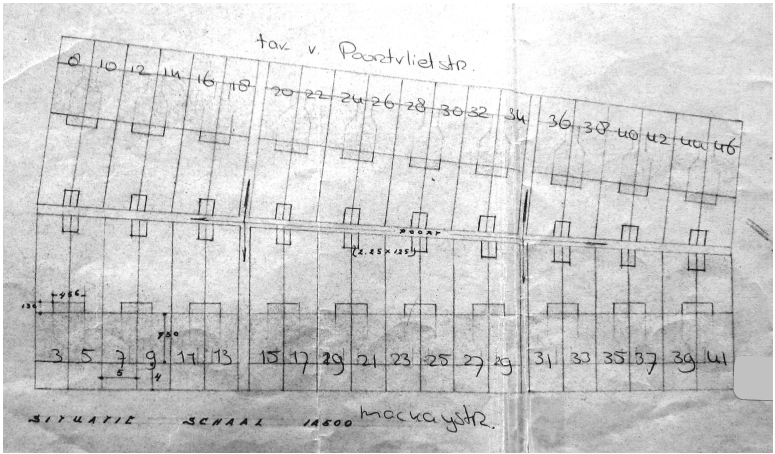 tav v. Poortvlietstr.
8 10 12 14 16 18 20 22 24 26 28 30 32 34 36 38 40 42 44 46
POORT
(2.25 x 125)
456
730
3 5 7 9 11 13 15 17 19 21 23 25 27 29 31 33 35 37 39 41
5
4
SITUATIE SCHAAL 1à500 mackaystr.